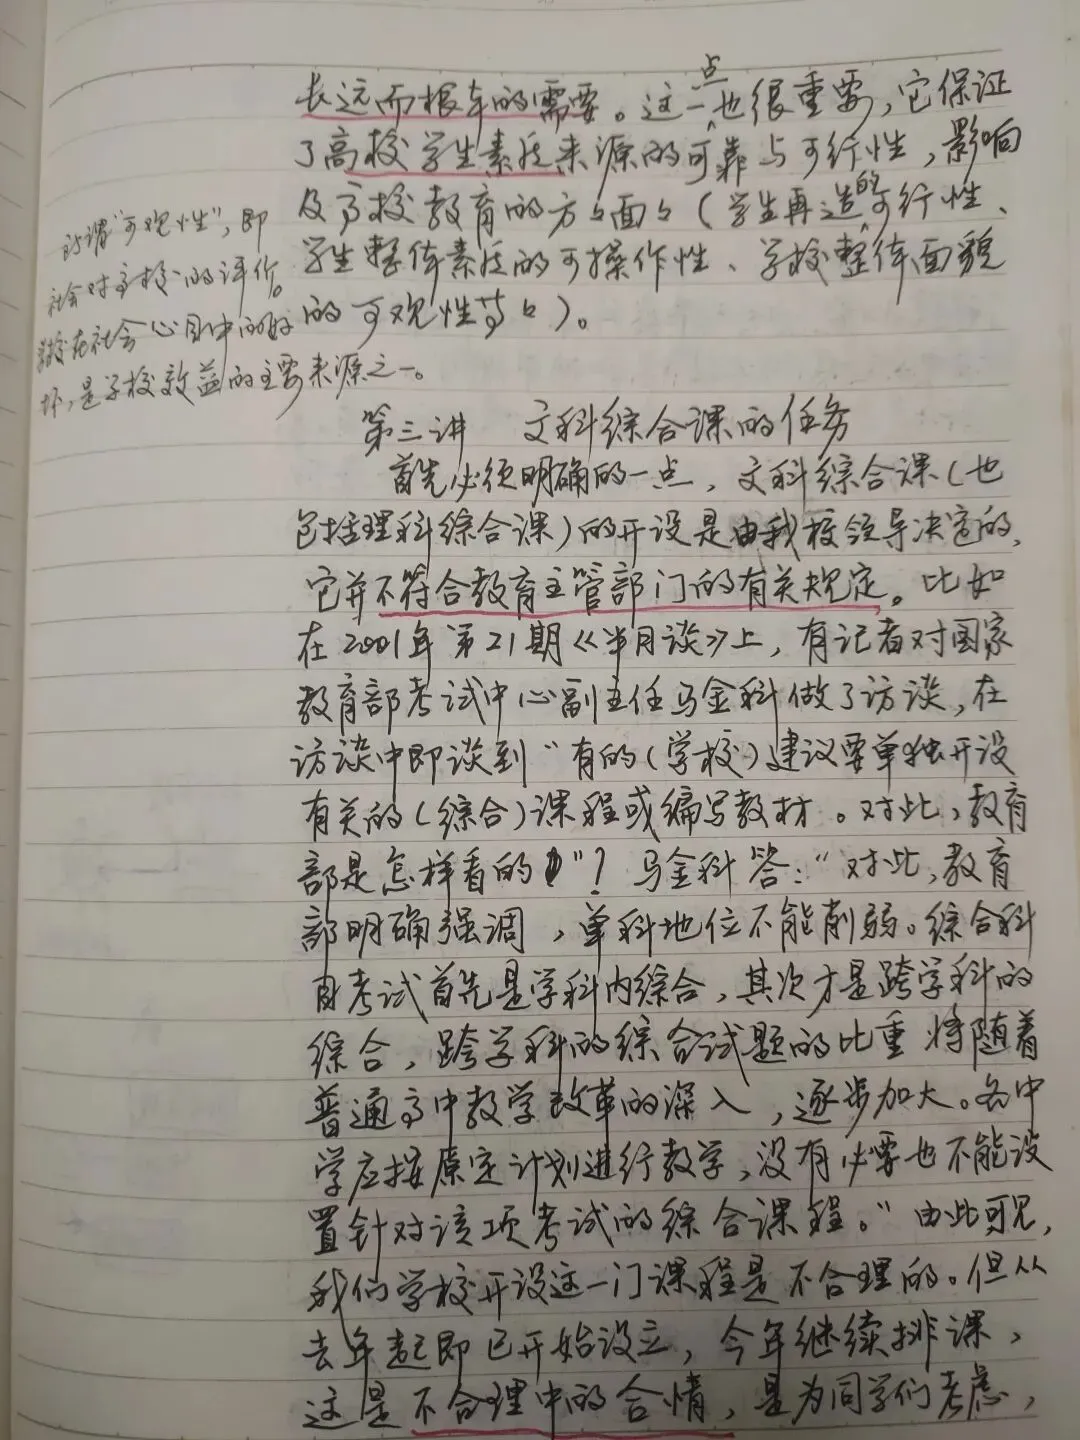 长远而根本的需要。这一点也很重要,它保证
了高校学生素质来源的可靠与可行性,影响
及高校教育的方方面面(学生再造的可行性、
学生整体素质的可操作性、学校整体面貌
的可观性等等)。
所谓“可观性”,即
社会对高校的评价。
学校在社会心目中的好
坏,是学校效益的主要来源之一。
第三讲 文科综合课的任务
首先必须明确的一点,文科综合课(也
包括理科综合课)的开设是由我校领导决定的,
它并不符合教育主管部门的有关规定。比如
在2001年第21期《半月谈》上,有记者对国家
教育部考试中心副主任马金科做了访谈,在
访谈中即谈到“有的(学校)建议要单独开设
有关的(综合)课程或编写教材。对此,教育
部是怎样看的”?马金科答:“对此,教育
部明确强调,单科地位不能削弱。综合科
目考试首先是学科内综合,其次才是跨学科的
综合,跨学科的综合试题的比重将随着
普通高中教学改革的深入,逐步加大。各中
学应按原定计划进行教学,没有必要也不能设
置针对该项考试的综合课程。”由此可见,
我们学校开设这一门课程是不合理的。但从
去年起即已开始设立,今年继续排课,
这是不合理中的合情,是为同学们考虑,